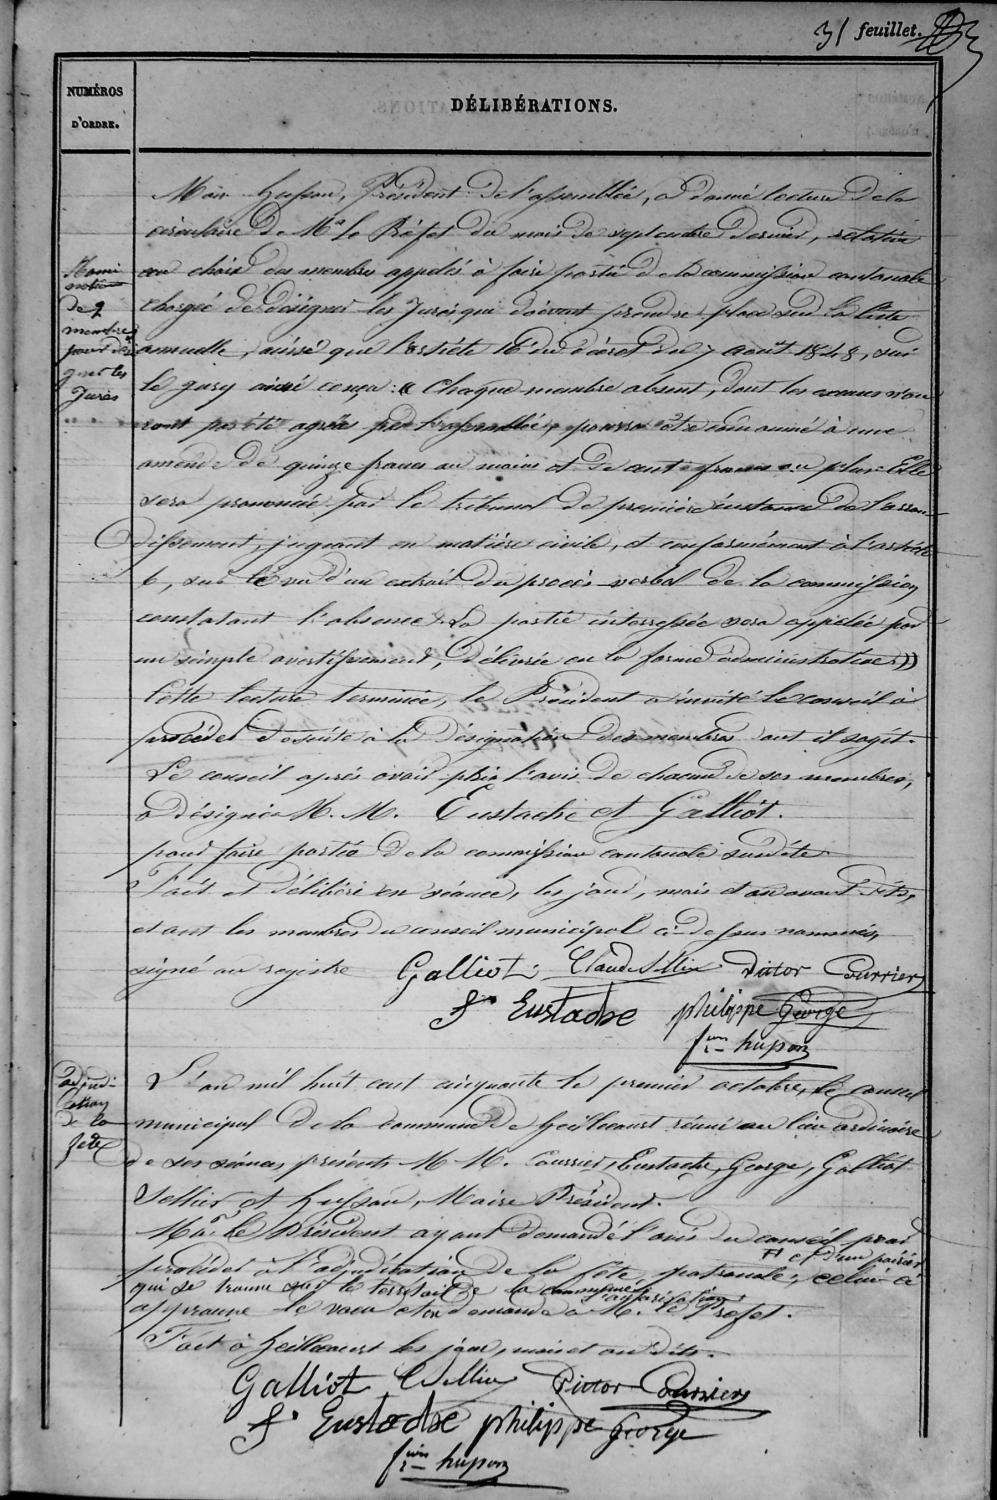 31 feuillet.
NUMÉROS
D'ORDRE.
DÉLIBÉRATIONS.
Nomi
nation
de 2
membres
pour dési
gner les
Jurés
Mair husson, Président de l'assemblée, a donné lecture de la
circulaire de Mr le Préfet du mois de septembre dernier, relative
au choix des membres appelés à faire partie de la commission cantonale
chargée de désigner les Jurés qui doivent prendre place sur la liste
annuelle, ainsi que l'article 16 du décret du 7 août 1848, sur
le jury ainsi conçu : « Chaque membre absent, dont les excuses n'au
ront pas été agréés par l'assemblée, pourra être condamné à une
amende de quinze francs au moins et de cent francs au plus. Elle
sera prononcée par le tribunal de première instance de l'arron
dissement, jugeant en matière civile, et conformément à l'article
6, sur le vu d'un extrait du procès verbal de la commission
constatant l'absence. La partie interressée sera appelée par
un simple avertissement, délivrée en la forme administrative »
Cette lecture terminée, le Président a invité le conseil à
procéder de suite à la désignation des membres dont il sagit.
Le conseil après avoir pris l'avis de chacun de ses membres,
a désigné M. M. Eustache et Galliot.
pour faire partie de la commission cantonale susdite.
Fait et délibéré en séance, les jour, mois et an avant dits,
et ont les membres du conseil municipal ci-dessus nommés,
signé au registre Galliot Claude Sellier Victor Courrier
F. Eustache philippe George
hupon
adjudi-
cation
de la
fête
L'an mil huit cent cinquante le premier octobre, le conseil
municipal de la commune de heillecourt réuni au lieu ordinaire
de ses séances, présents M M. Courrier, Eustache, George, Galliot
Sellier et husson, Maire Président.
Mr le Président ayant demandé l'avis du conseil pour
et d'un poirier
procéder à l'adjudication de la fête patronale, celui-ci
qui se trouve sur le territoire de la commune
approuve le vœu et en demande à M. le Préfet.
Fait à heillecourt les jour, mois et an dits.
Galliot Sellier Victor Courrier
F. Eustache philippe George
hupon